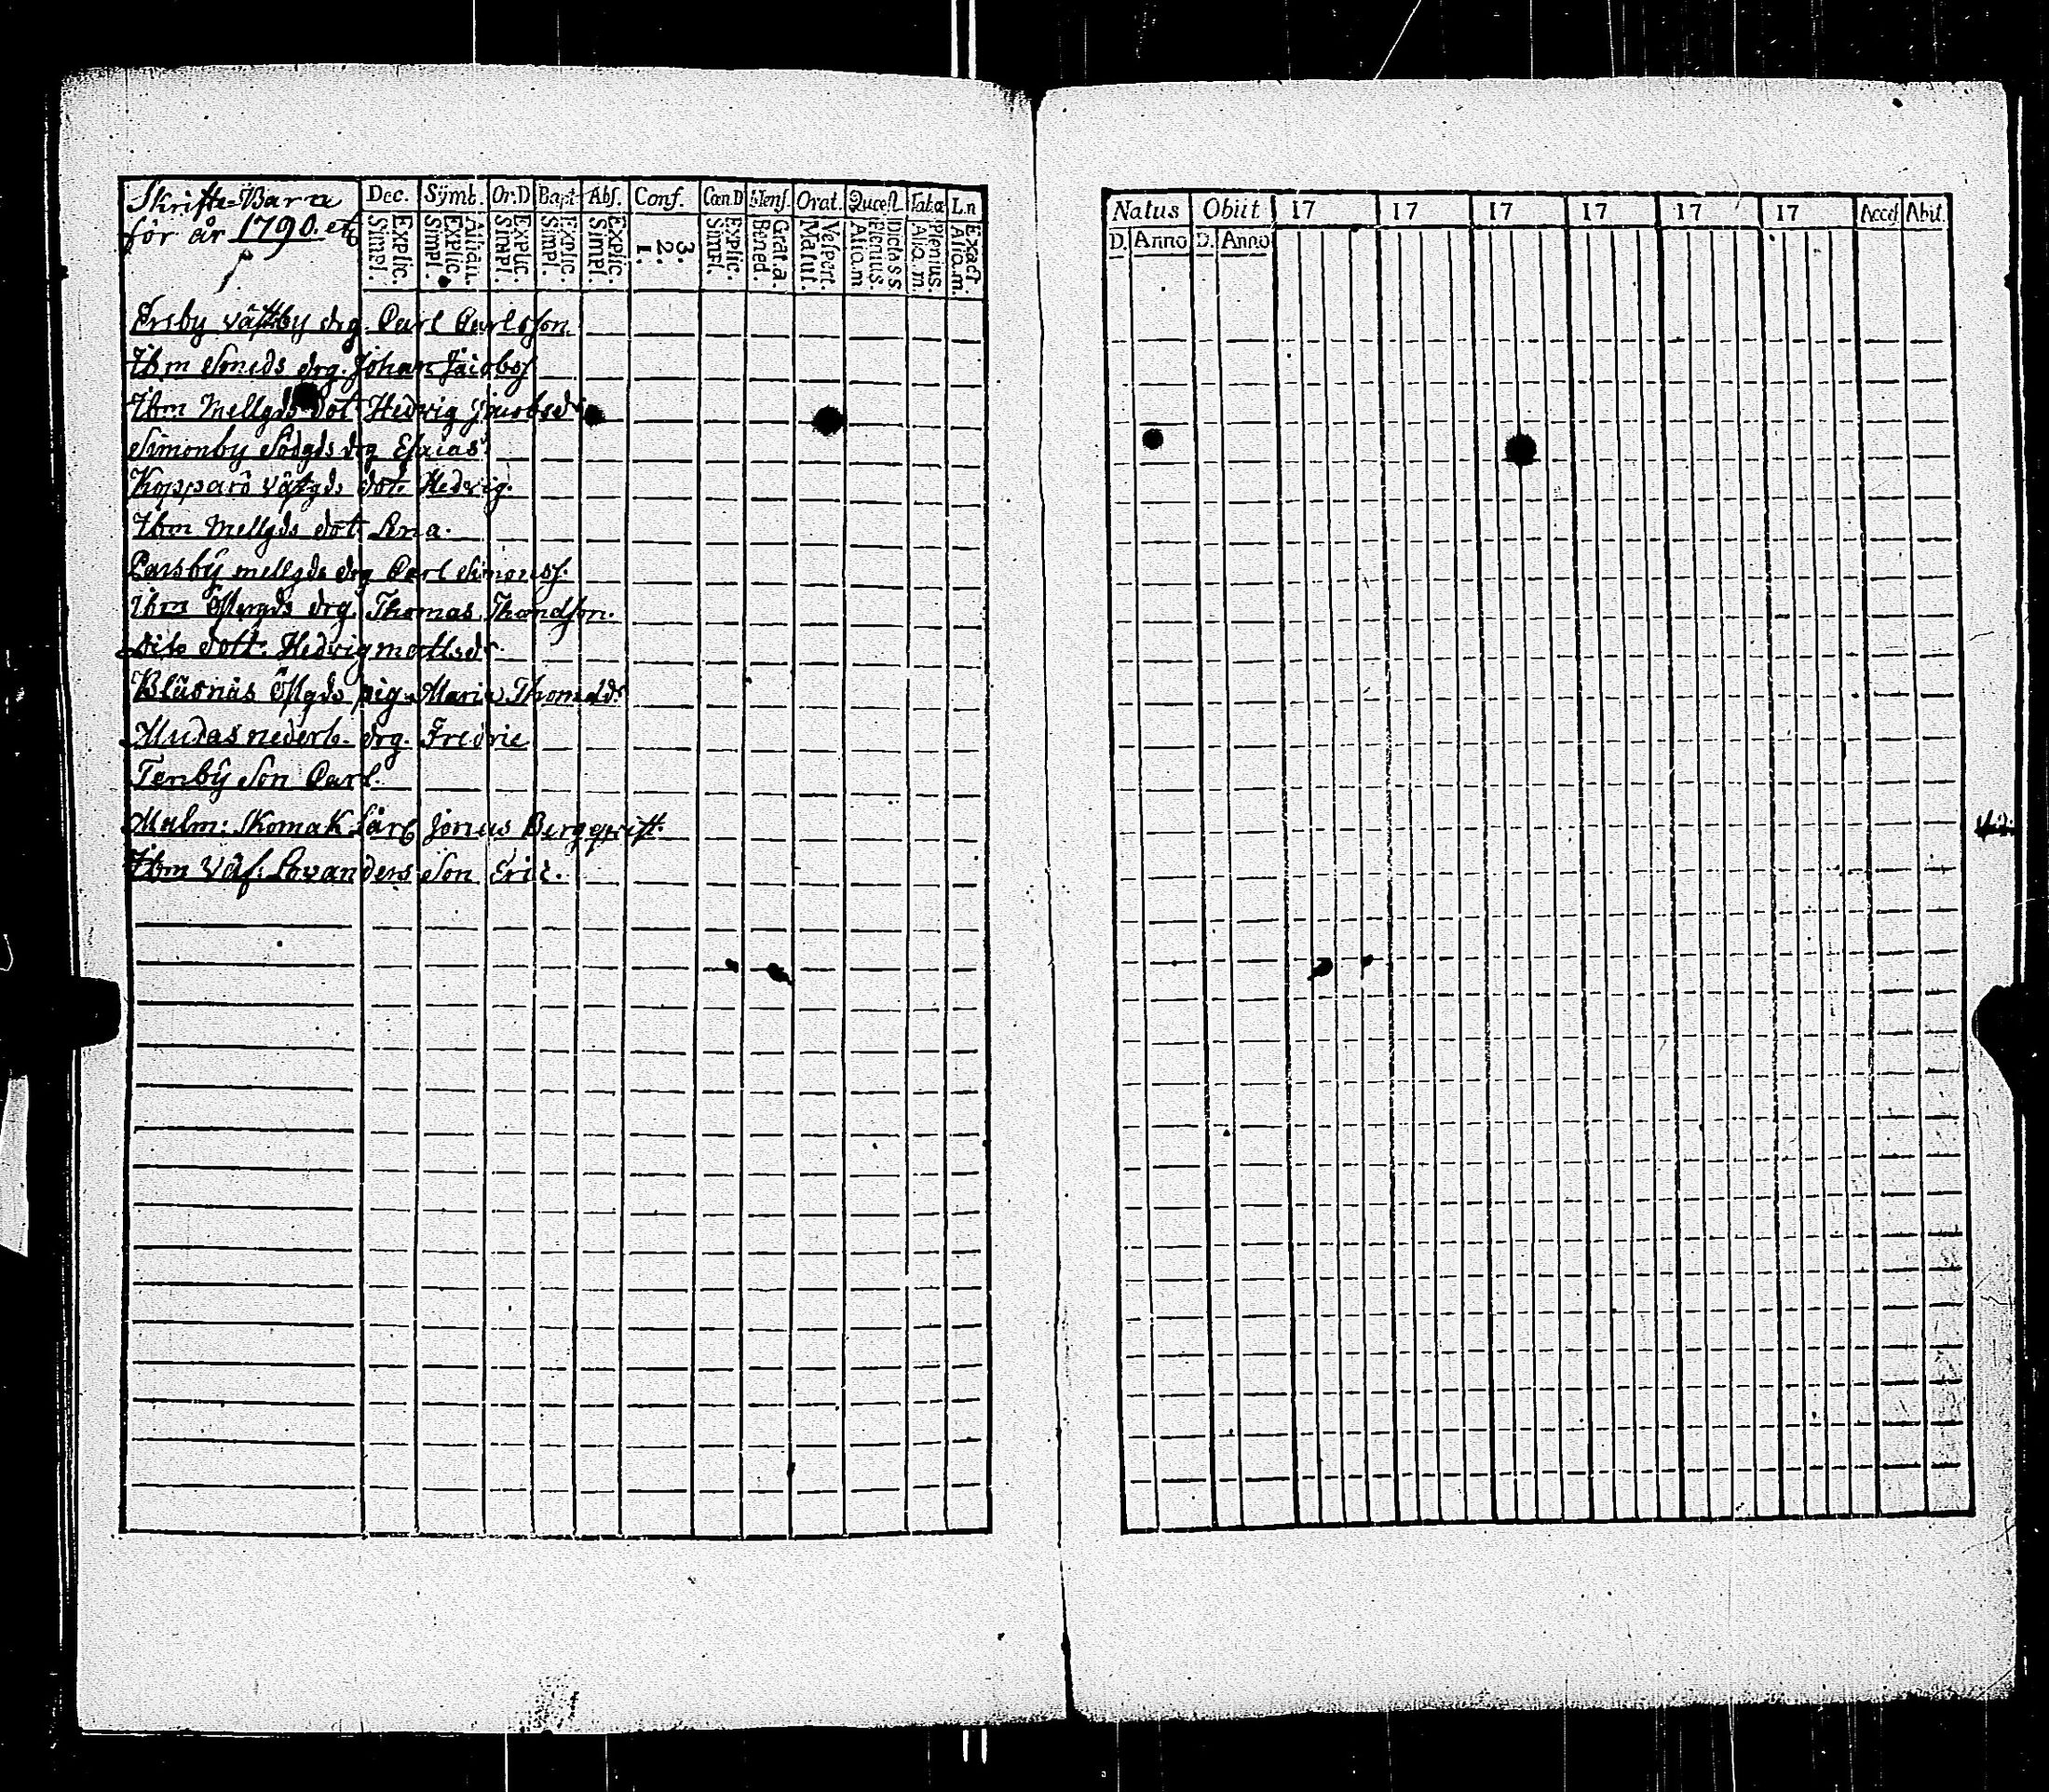 Skrifte-Barn
för år 1790. etc
Dec. Symb. Or:D Bapt. Abs. Conf. Cœn.D Mens. Orat. Quæst. Tab.æ L.n
Explic. Simpl. Athan. Explic. Simpl. Explic. Simpl. Explic. Simpl. Explic. Simpl. 3. 2. 1. Explic. Simpl. Grat. a. Bened. Vesport. Matut. Dictass Plenius. Alio.m Plenius. Alio.m. Exact. Alio.m.
Ersby västby drg. Carl Carlsson.
Ibm Smeds drg. Johan Jacobs.
Ibm Mellgds dot. Hedvig Jacobsdr
Simonby Södgds drg Esaias
Kopparö västgds dot. Hedvig.
Ibm Mellgds dot. Lena.
Parsby mellgds drg Carl Simonss.
Ibm Östergds drg. Thomas Thomasson.
dito dott. Hedvig mattsdr
Blåsnäs Östgds pig. Maria Thomasdr
Mudas nederb. drg. Fredric
Tenby Son Carl.
Malm: Skomak. lärl. Jonas Bergqvist.
Ibm Väf. Lovanders Son Eric.
Natus Obiit 17 17 17 17 17 17 Acces. Abit.
D. Anno D. Anno